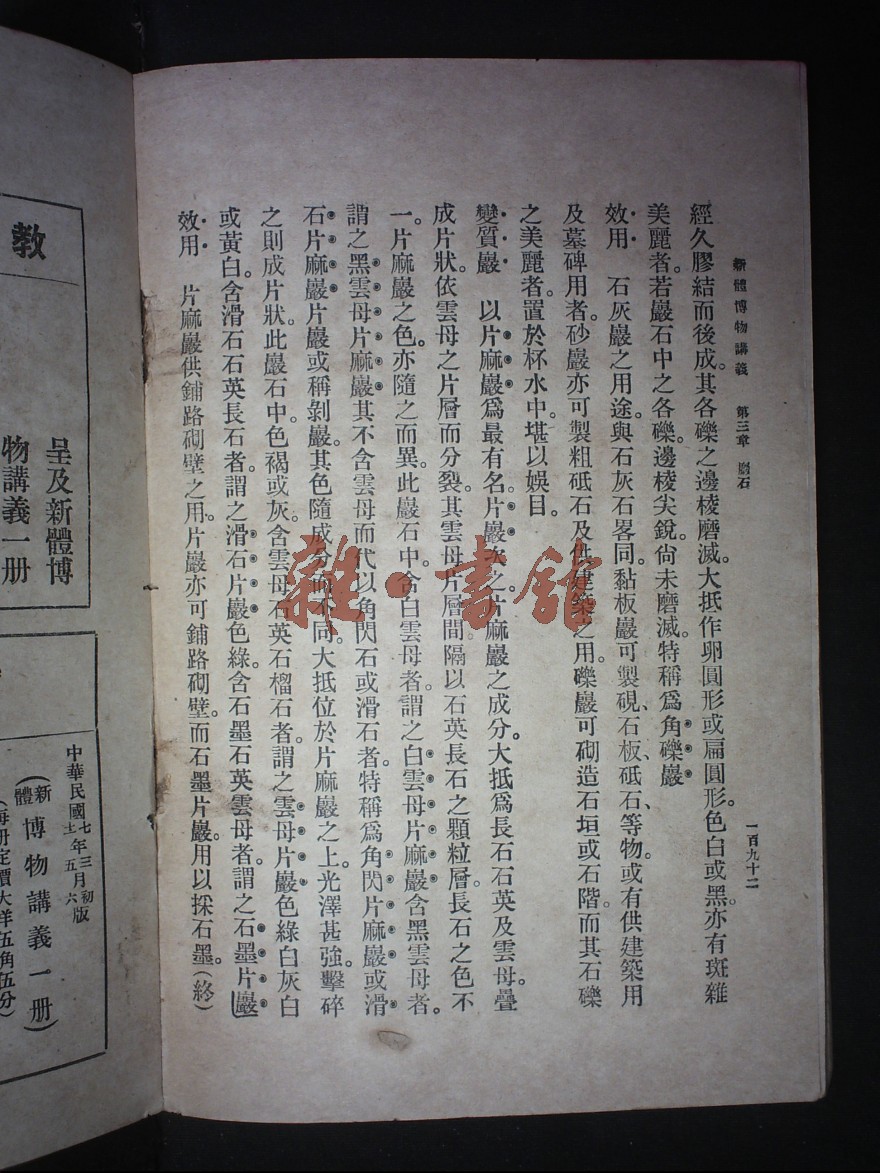 新體博物講義　第三章　巖石
一百九十二
經久膠結而後成。其各礫之邊棱磨滅。大抵作卵圓形或扁圓形。色白或黑。亦有斑雜
美麗者。若巖石中之各礫。邊棱尖銳。尙未磨滅。特稱爲角礫巖
效用　石灰巖之用途。與石灰石畧同。黏板巖可製硯、石板、砥石、等物。或有供建築用
及墓碑用者。砂巖亦可製粗砥石及供建築之用。礫巖可砌造石垣或石階。而其石礫
之美麗者。置於杯水中。堪以娛目。
變質巖　以片麻巖爲最有名。片巖次之。片麻巖之成分。大抵爲長石石英及雲母。疊
成片狀。依雲母之片層而分裂。其雲母片層間。隔以石英長石之顆粒層。長石之色不
一。片麻巖之色。亦隨之而異。此巖石中。含白雲母者。謂之白雲母片麻巖。含黑雲母者。
謂之黑雲母片麻巖。其不含雲母而代以角閃石或滑石者。特稱爲角閃片麻巖或滑
石片麻巖。片巖或稱剝巖。其色隨成分而不同。大抵位於片麻巖之上。光澤甚強。擊碎
之則成片狀。此巖石中。色褐或灰。含雲母石英石榴石者。謂之雲母片巖。色綠白灰白
或黃白。含滑石石英長石者。謂之滑石片巖。色綠。含石墨石英雲母者。謂之石墨片巖
效用　片麻巖供鋪路砌壁之用。片巖亦可鋪路砌壁。而石墨片巖。用以採石墨。（終）
雜·書館
教
呈及新體博
物講義一册
中華民國七年三月初版
（新體博物講義一册）
（每册定價大洋五角五分）